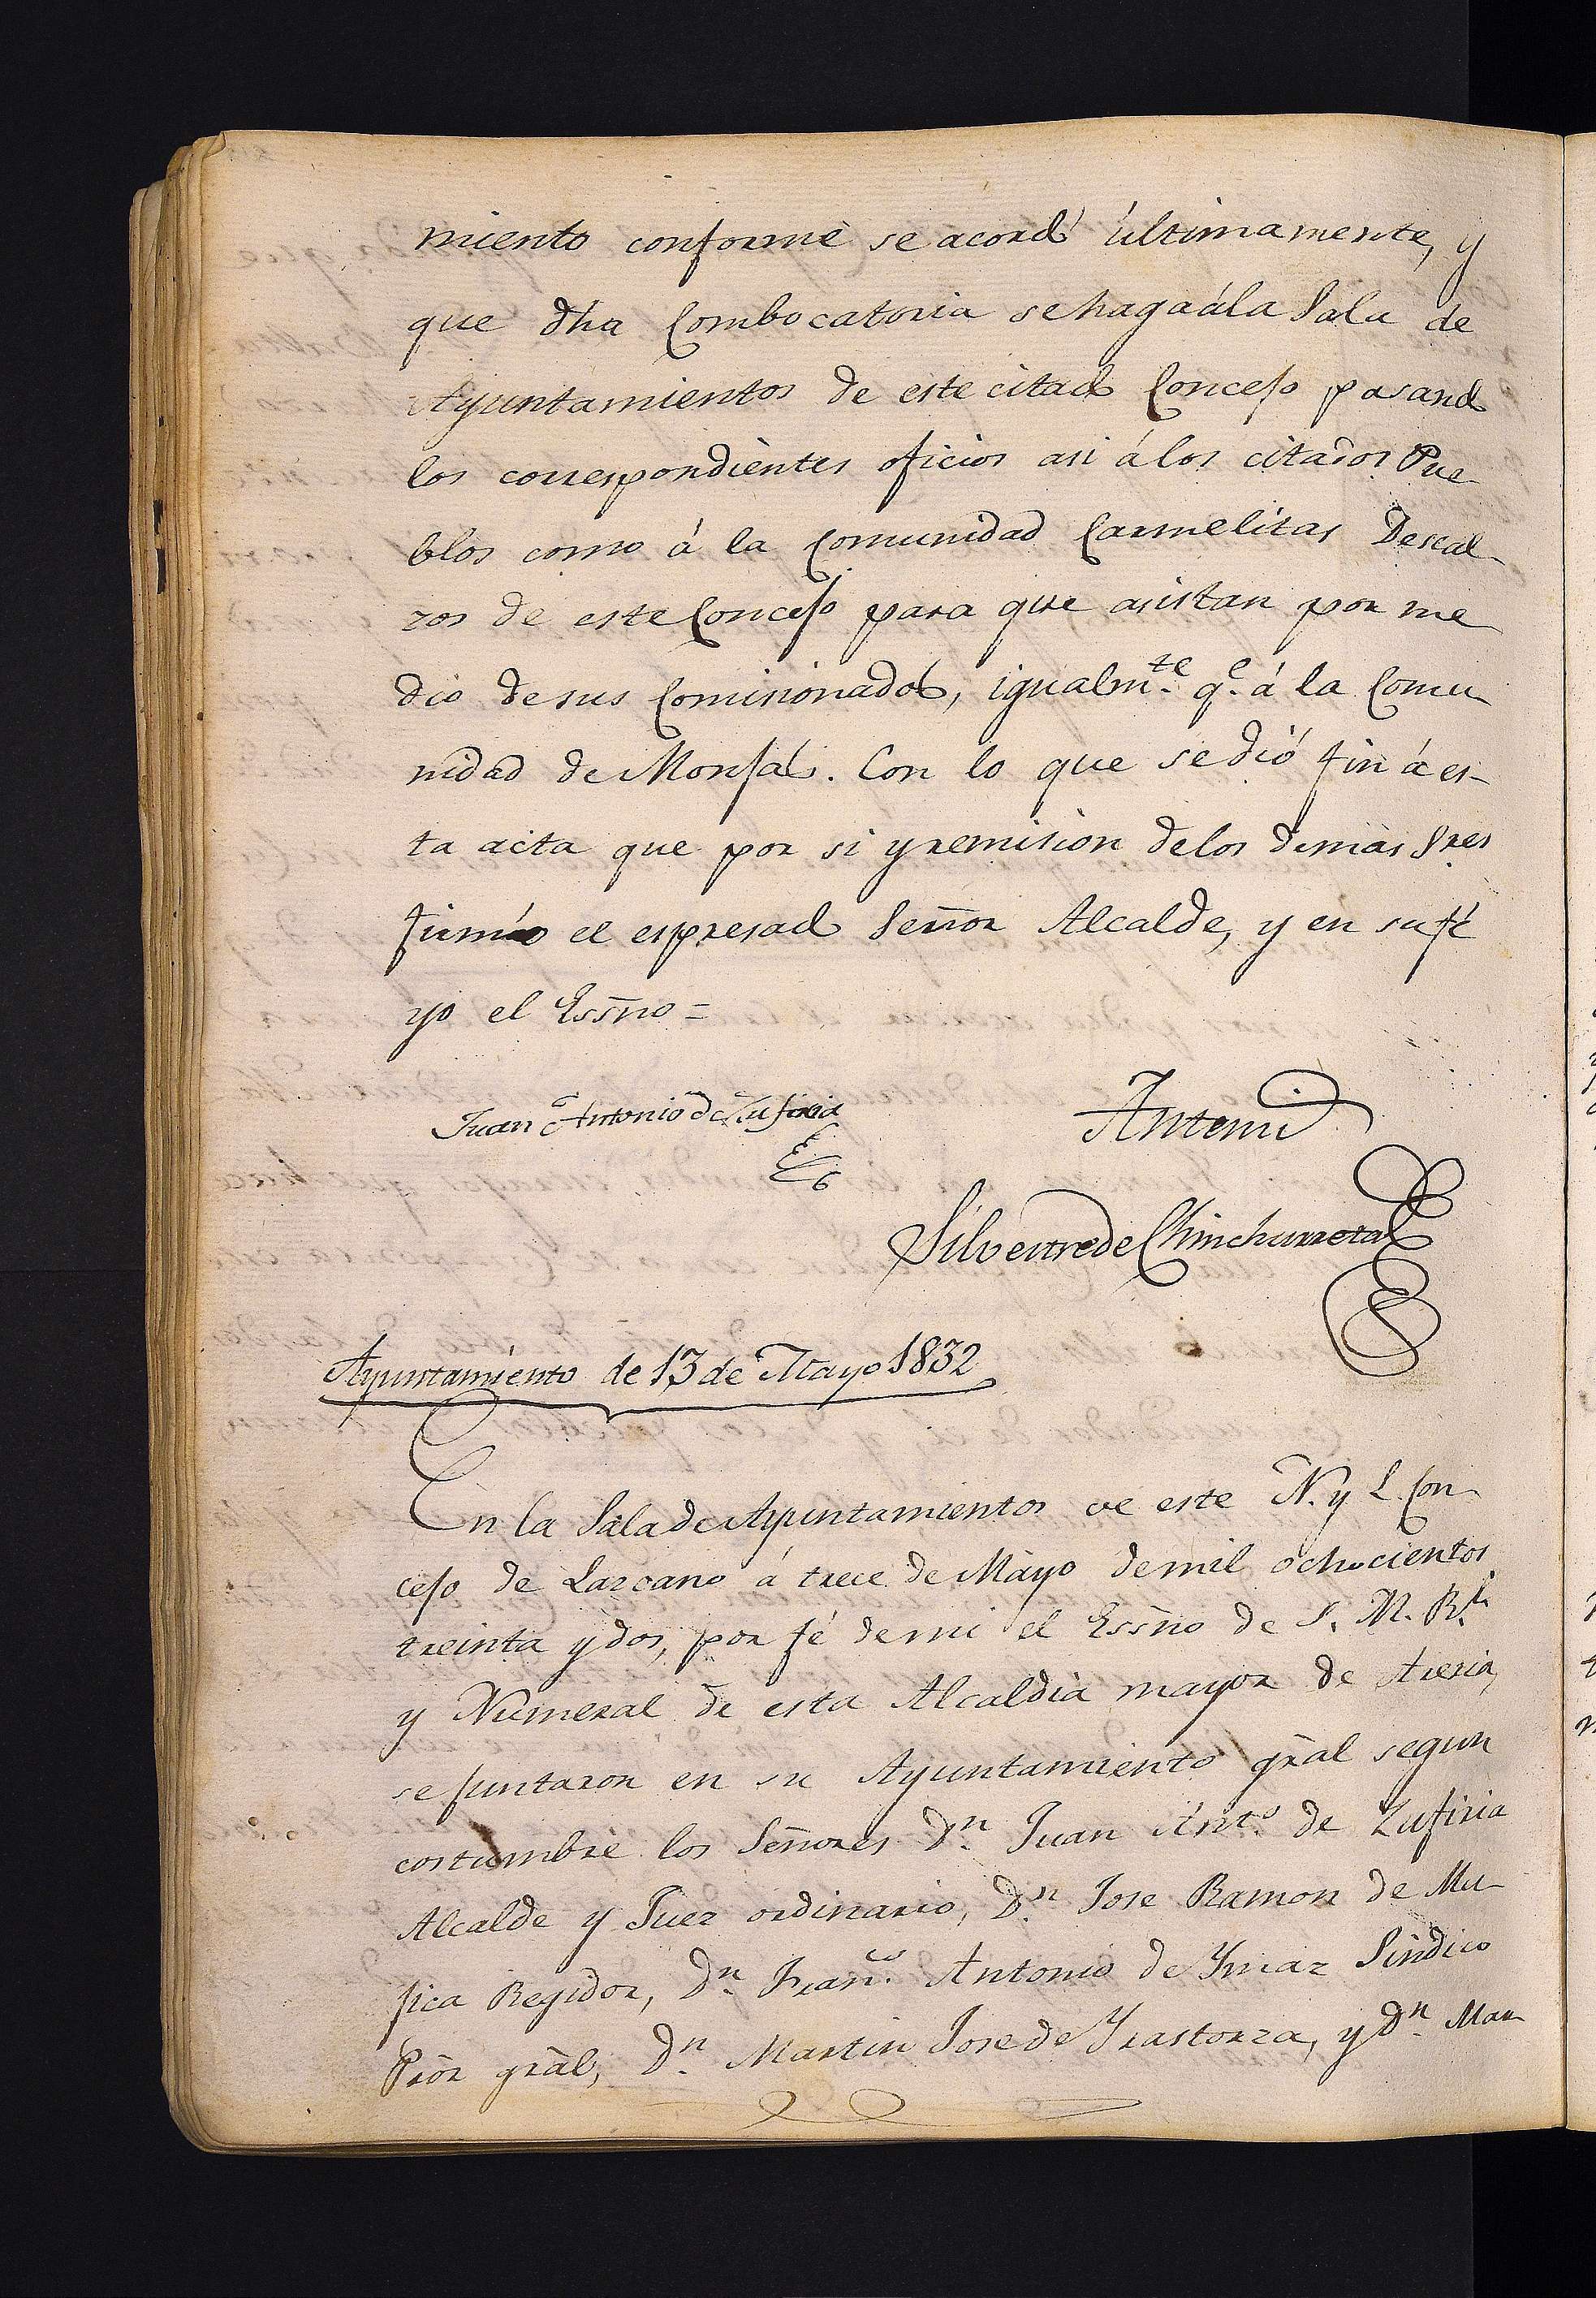 miento conforme se acordó ùltimamente, y
que dha Combocatoria se haga à la Sala de
Ayuntamientos de este citado Concejo pasando
los correspondientes oficios asi á los citados Pue-
blos como á la Comunidad Carmelitas Descal-
zos de este Concejo para que asistan por me
dio de sus Comisionados, igualmte. qe. á la Comu-
nidad de Monjas. Con lo que se dió fin á es-
ta acta que por si y remision de los demas Sres
firmó el espresado Señor Alcalde, y en su fé
yo el Essno=
Juan Antonio de Zufiria
Antemi
Silvestre de Chinchurreta
Ayuntamiento de 13 de Mayo 1832
En la Sala de Ayuntamientos de este N. y L. Con-
cejo de Lazcano á trece de Mayo de mil ochocientos
treinta y dos, por fé de mi el Essno de S. M. Rl.
y Numeral de esta Alcaldia mayor de Areria,
se juntaron en su Ayuntamiento gràl segun
costumbre los Señores Dn. Juan Anto. de Zufiria
Alcalde y Juez ordinario, Dn. Jose Ramon de Mu-
jica Regidor, Dn. Franco. Antonio de Ymaz Sindico
Pròr gràl, Dn. Martin Jose de Yrastorza, y Dn. Mar-